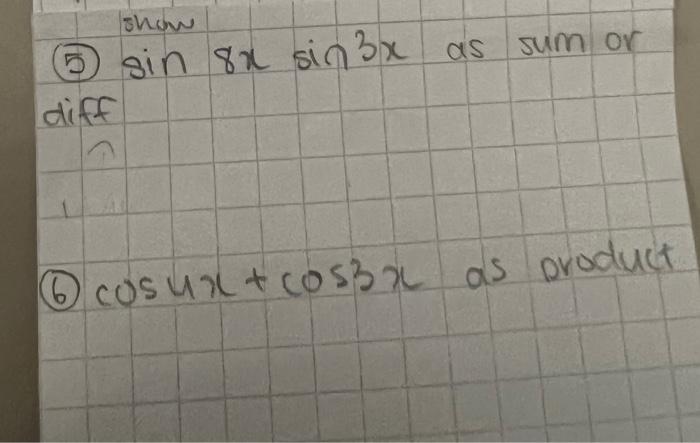 show
⑤ sin 8x sin 3x as sum or
diff
⑥ cos4x + cos3x as product